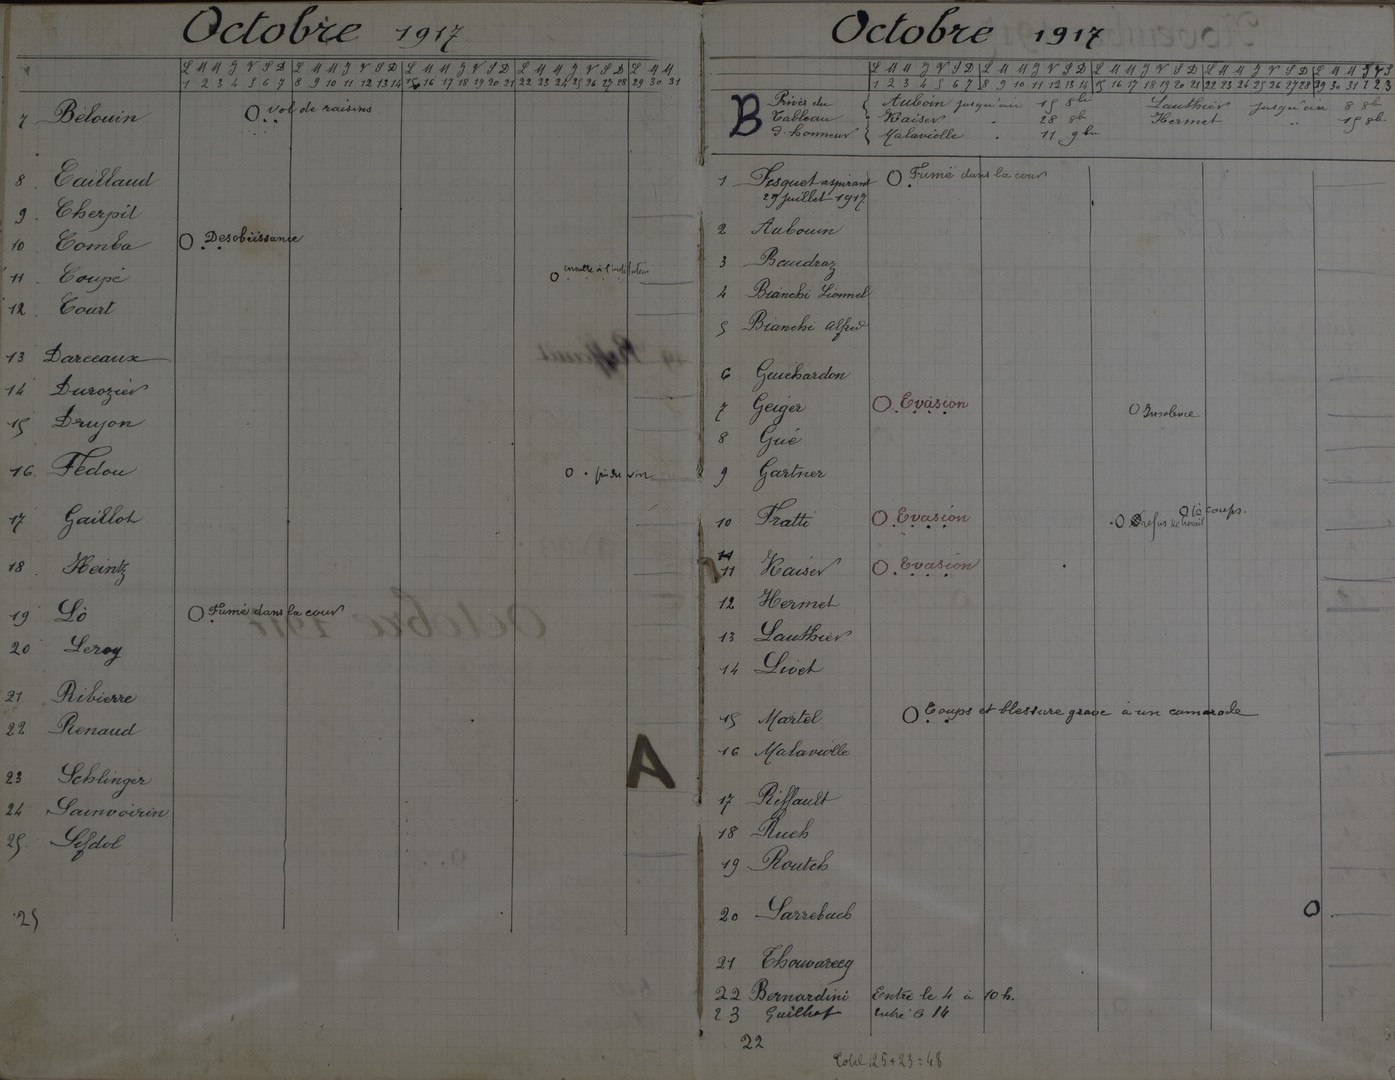 Octobre 1917
L M M J V S D L M M J V S D L M M J V S D L M M J V S D L M M
1 2 3 4 5 6 7 8 9 10 11 12 13 14 15 16 17 18 19 20 21 22 23 24 25 26 27 28 29 30 31
7 Bélouin O vol de raisins
8. Caillaud
9. Cherpit
10 Comba O Desobéissance
11 Coupé O insulte à l'instituteur
12. Court
13 Darceaux
14 Durozier
15 Drujon
16. Fédou O
17 Gaillot
18. Heintz
19 Lô O Fumé dans la cour
20 Leroy
21 Ribierre
22 Renaud
23 Schlinger
24 Sainvoirin
25.
25
A
Octobre 1917
L M M J V S D L M M J V S D L M M J V S D L M M J V S D L M M J V S
1 2 3 4 5 6 7 8 9 10 11 12 13 14 15 16 17 18 19 20 21 22 23 24 25 26 27 28 29 30 31 1 2 3
B Privés du Tableau d'honneur
Auboin jusqu'au 15 8bre Lauthier jusqu'au 8 8bre
Kaiser " 28 8b Hermet " 15 8b
Malaviolle " 11 9bre
1 Fesquet aspirant O Fumé dans la cour
29 juillet 1917
2 Aubouin
3 Baudraz
4 Bianchi Lionnel
5 Bianchi Alfred
6 Guichardon
7 Geiger O Evasion O Insolence
8 Gué
9 Gartner
10 Fratti O Evasion O refus de travail O coups.
11 Kaiser O Evasion
12 Hermet
13 Lauthier
14 Livet
15 Martel O Coups et blessure grave à un camarade
16 Malaviolle
17 Riffault
18 Ruch
19 Routch
20 Sarrebach O
21 Thouvarecq
22 Bernardini Entré le 4 à 10 h.
23 Guilhot entré le 14
22
Total 25+23=48